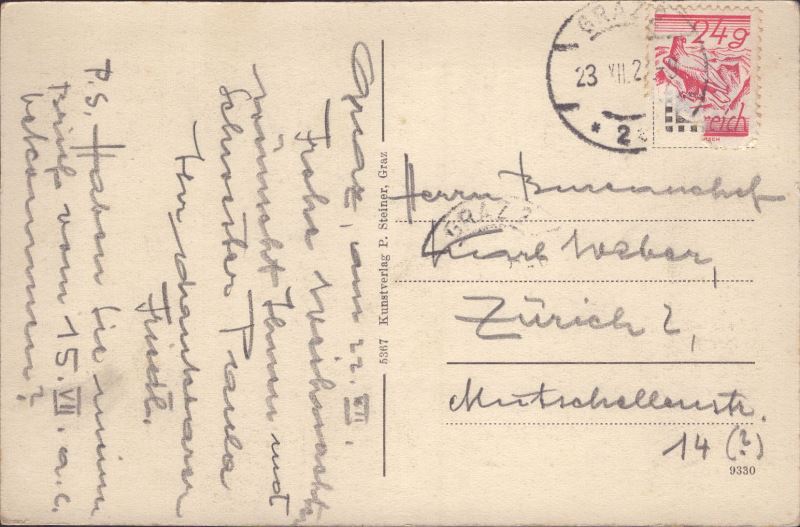 Graz, am 22. XII.
Frohe Weihnachten
wünscht Ihnen und
Schwester Paula
Ihr dankbarer
Friedl.
P.S. Haben Sie meinen
Brief vom 15. VII. a.c.
bekommen?
5367 Kunstverlag P. Steiner, Graz
GRAZ
23 XII 2
* 2
24g
reich
GRAZ 2
Herrn Bureauchef
Karl Weber,
Zürich 2,
Mutschellenstr.
14 (?)
9330